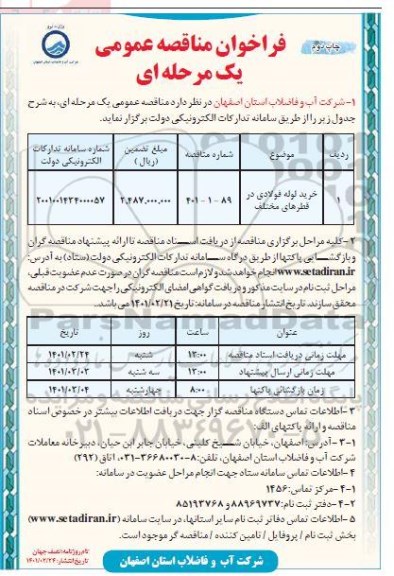 چاپ دوم
فراخوان مناقصه عمومی
یک مرحله ای
۱- شرکت آب و فاضلاب استان اصفهان در نظر دارد مناقصه عمومی یک مرحله ای، به شرح
جدول زیر را از طریق سامانه تدارکات الکترونیکی دولت برگزار نماید.
ردیف موضوع شماره مناقصه مبلغ تضمین (ریال) شماره سامانه تدارکات الکترونیکی دولت
۱ خرید لوله فولادی در قطرهای مختلف ۸۹ - ۱ - ۴۰۱ ۲,۴۸۷,۰۰۰,۰۰۰ ۲۰۰۱۰۰۱۴۲۴۰۰۰۰۵۷
۲- کلیه مراحل برگزاری مناقصه از دریافت اسناد مناقصه تا ارائه پیشنهاد مناقصه گران
و بازگشایی پاکتها از طریق درگاه سامانه تدارکات الکترونیکی دولت (ستاد) به آدرس:
www.setadiran.ir انجام خواهد شد و لازم است مناقصه گران در صورت عدم عضویت قبلی،
مراحل ثبت نام در سایت مذکور و دریافت گواهی امضای الکترونیکی را جهت شرکت در مناقصه
محقق سازند. تاریخ انتشار مناقصه در سامانه: تاریخ ۱۴۰۱/۰۲/۲۱ می باشد.
عنوان ساعت روز تاریخ
مهلت زمانی دریافت اسناد مناقصه ۱۳:۰۰ شنبه ۱۴۰۱/۰۲/۲۴
مهلت زمانی ارسال پیشنهاد ۱۳:۰۰ سه شنبه ۱۴۰۱/۰۳/۰۳
زمان بازگشائی پاکتها ۸:۰۰ چهارشنبه ۱۴۰۱/۰۳/۰۴
۳- اطلاعات تماس دستگاه مناقصه گزار جهت دریافت اطلاعات بیشتر در خصوص اسناد
مناقصه و ارائه پاکتهای الف:
۳-۱- آدرس: اصفهان، خیابان شیخ کلینی، خیابان جابر ابن حیان، دبیرخانه معاملات
شرکت آب و فاضلاب استان اصفهان، تلفن: ۸-۳۶۶۸۰۰۳۰-۰۳۱، اتاق (۲۹۲)
۴- اطلاعات تماس سامانه ستاد جهت انجام مراحل عضویت در سامانه:
۴-۱- مرکز تماس: ۱۴۵۶
۴-۲- دفتر ثبت نام: ۸۸۹۶۹۷۳۷ و ۸۵۱۹۳۷۶۸
۵- اطلاعات تماس دفاتر ثبت نام سایر استانها، در سایت سامانه (www.setadiran.ir)
بخش ثبت نام / پروفایل / تامین کننده / مناقصه گر موجود است.
شرکت آب و فاضلاب استان اصفهان
نام روزنامه: نصف جهان
تاریخ انتشار: ۱۴۰۱/۰۲/۲۴